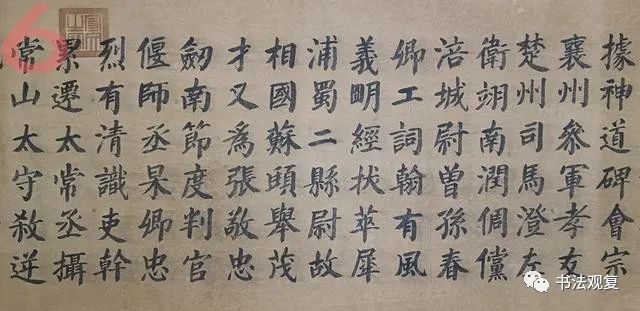 據神道碑會宗
襄州參軍孝友
楚州司馬澄左
衛翊南潤倜儻
涪城尉曾孫春
卿工詞翰有風
義明經拔萃犀
浦蜀二縣尉故
相國蘇頲舉茂
才又為張敬忠
劒南節度判官
偃師丞杲卿忠
烈有清識吏幹
累遷太常丞攝
常山太守殺逆
6
书法观复